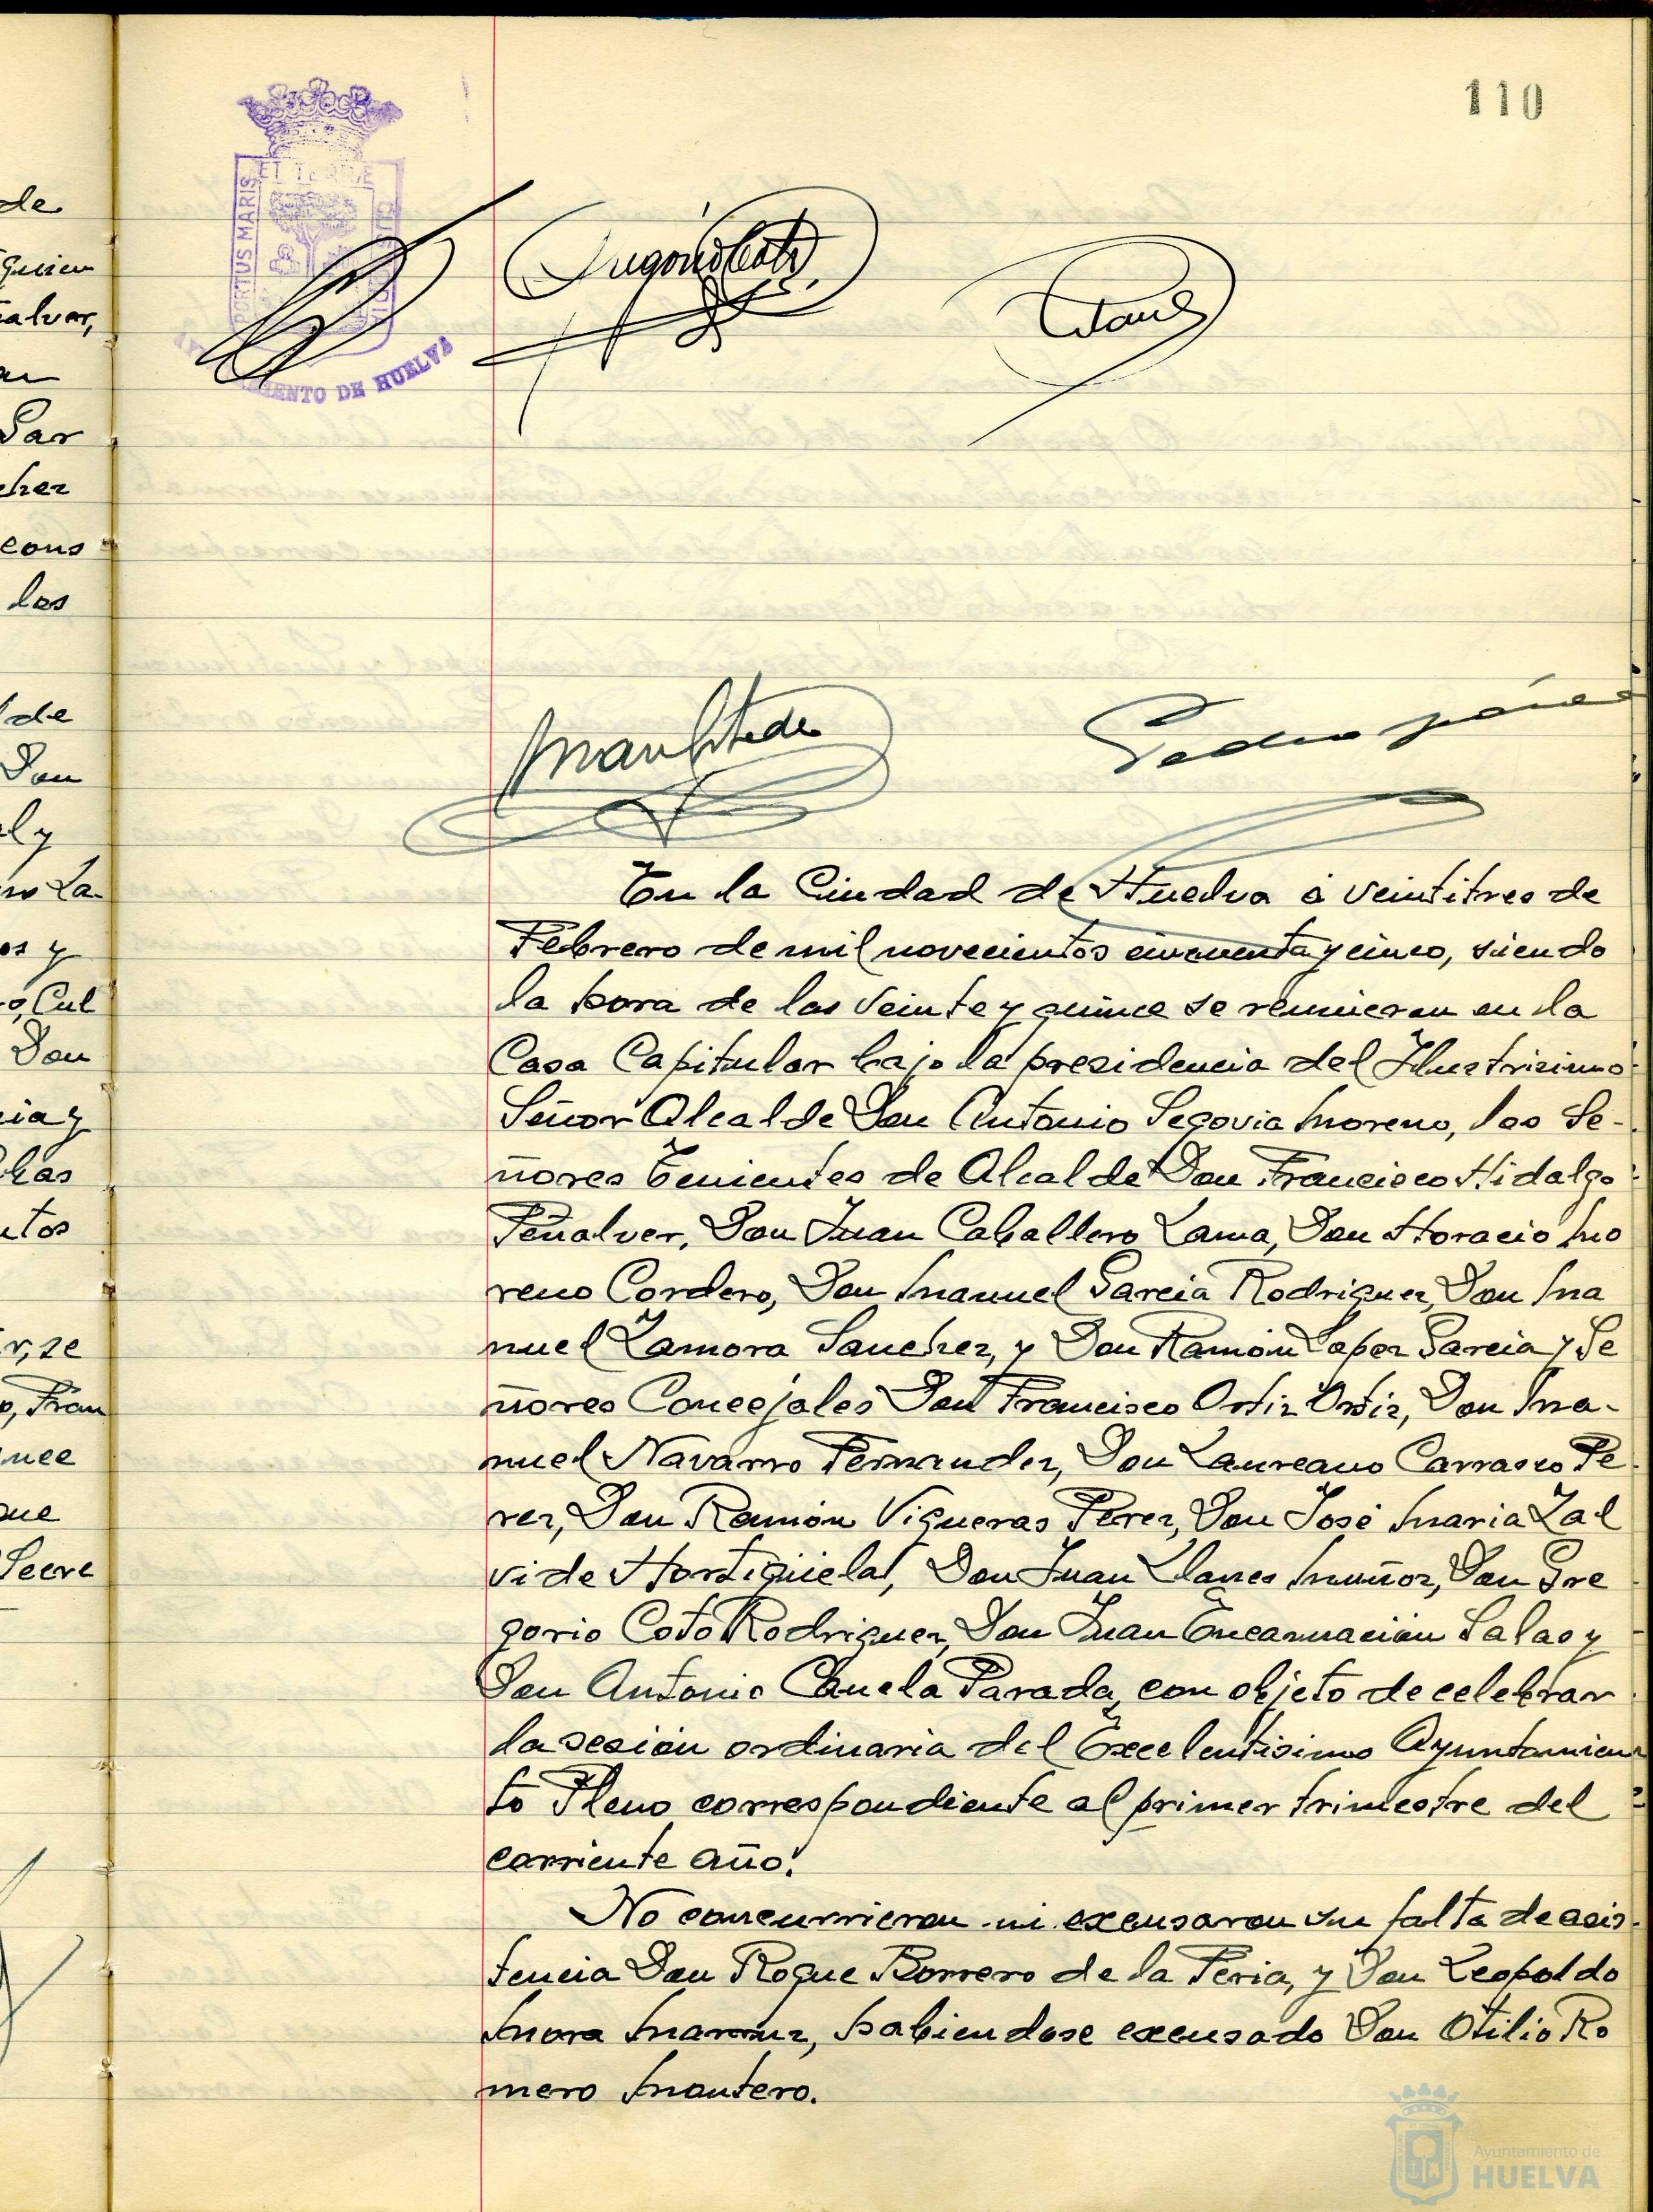 110
PORTUS MARIS
ET TERRE
CUSTODIA
AYUNTAMIENTO DE HUELVA
de
quien
ñalver,
Gar
chez
cons
los
de
Don
l y
no La-
os y
o, Cul
Don
cia y
tos
r, se
o, Fran
que
Secre
Gregorio Coto
Pedro
En la Ciudad de Huelva á veintitres de
Febrero de mil novecientos cincuenta y cinco, siendo
la hora de las veinte y quince se reunieron en la
Casa Capitular bajo la presidencia del Ilustrisimo
Señor Alcalde Don Antonio Segovia Moreno, los Se-
ñores Tenientes de Alcalde Don Francisco Hidalgo
Peñalver, Don Juan Caballero Lama, Don Horacio Mo
reno Cordero, Don Manuel Garcia Rodriguez, Don Ma
nuel Zamora Sanchez, y Don Ramón Lopez Garcia y Se
ñores Concejales Don Francisco Ortiz Ortiz, Don Ma-
nuel Navarro Fernandez, Don Laureano Carrasco Pe
rez, Don Ramón Vigueras Perez, Don José Maria Zal
vide Hortigüela, Don Juan Llanes Muñoz, Don Gre
gorio Coto Rodriguez, Don Juan Encarnación Salas y
Don Antonio Canela Parada, con objeto de celebrar
la sesión ordinaria del Excelentisimo Ayuntamien
to Pleno correspondiente al primer trimestre del
corriente año.
No concurrieron ni excusaron su falta de asis-
tencia Don Roque Borrero de la Feria, y Don Leopoldo
Mora, habiendose excusado Don Otilio Ro
mero Montero.
Ayuntamiento de
HUELVA